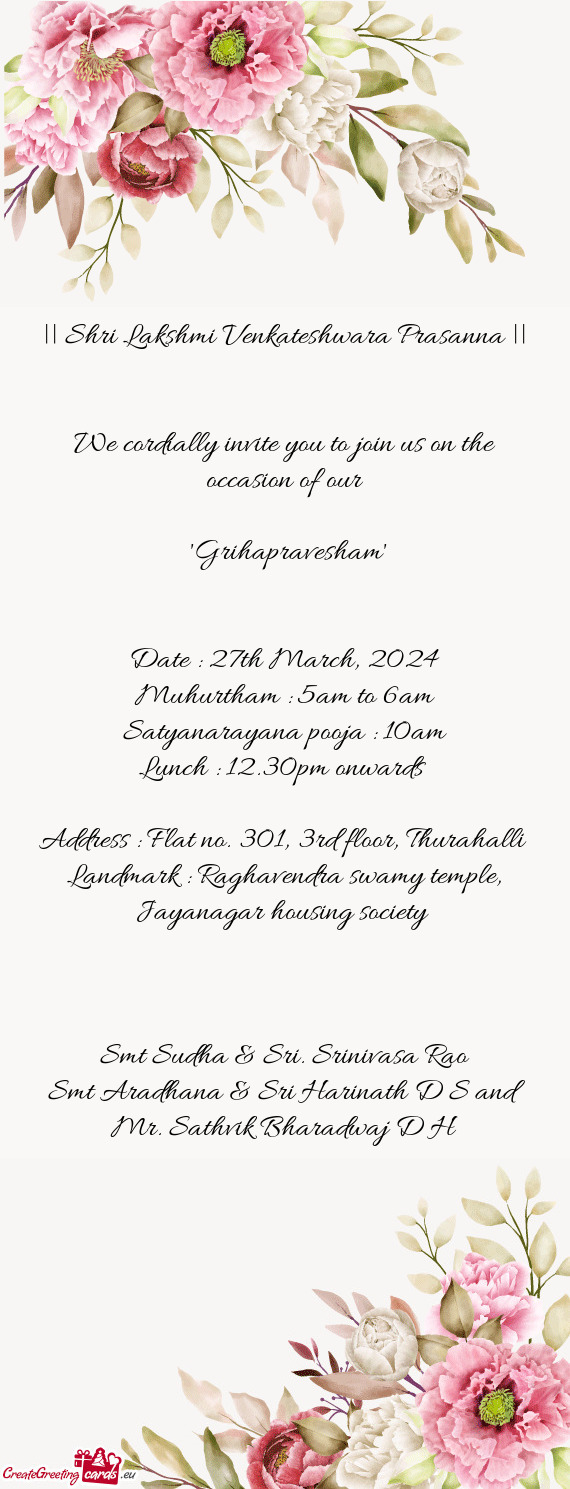 || Shri Lakshmi Venkateshwara Prasanna ||
We cordially invite you to join us on the
occasion of our
"Grihapravesham"
Date : 27th March, 2024
Muhurtham : 5am to 6am
Satyanarayana pooja : 10am
Lunch : 12.30pm onwards
Address : Flat no. 301, 3rd floor, Thurahalli
Landmark : Raghavendra swamy temple,
Jayanagar housing society
Smt Sudha & Sri. Srinivasa Rao
Smt Aradhana & Sri Harinath D S and
Mr. Sathvik Bharadwaj D H
CreateGreetingcards.eu